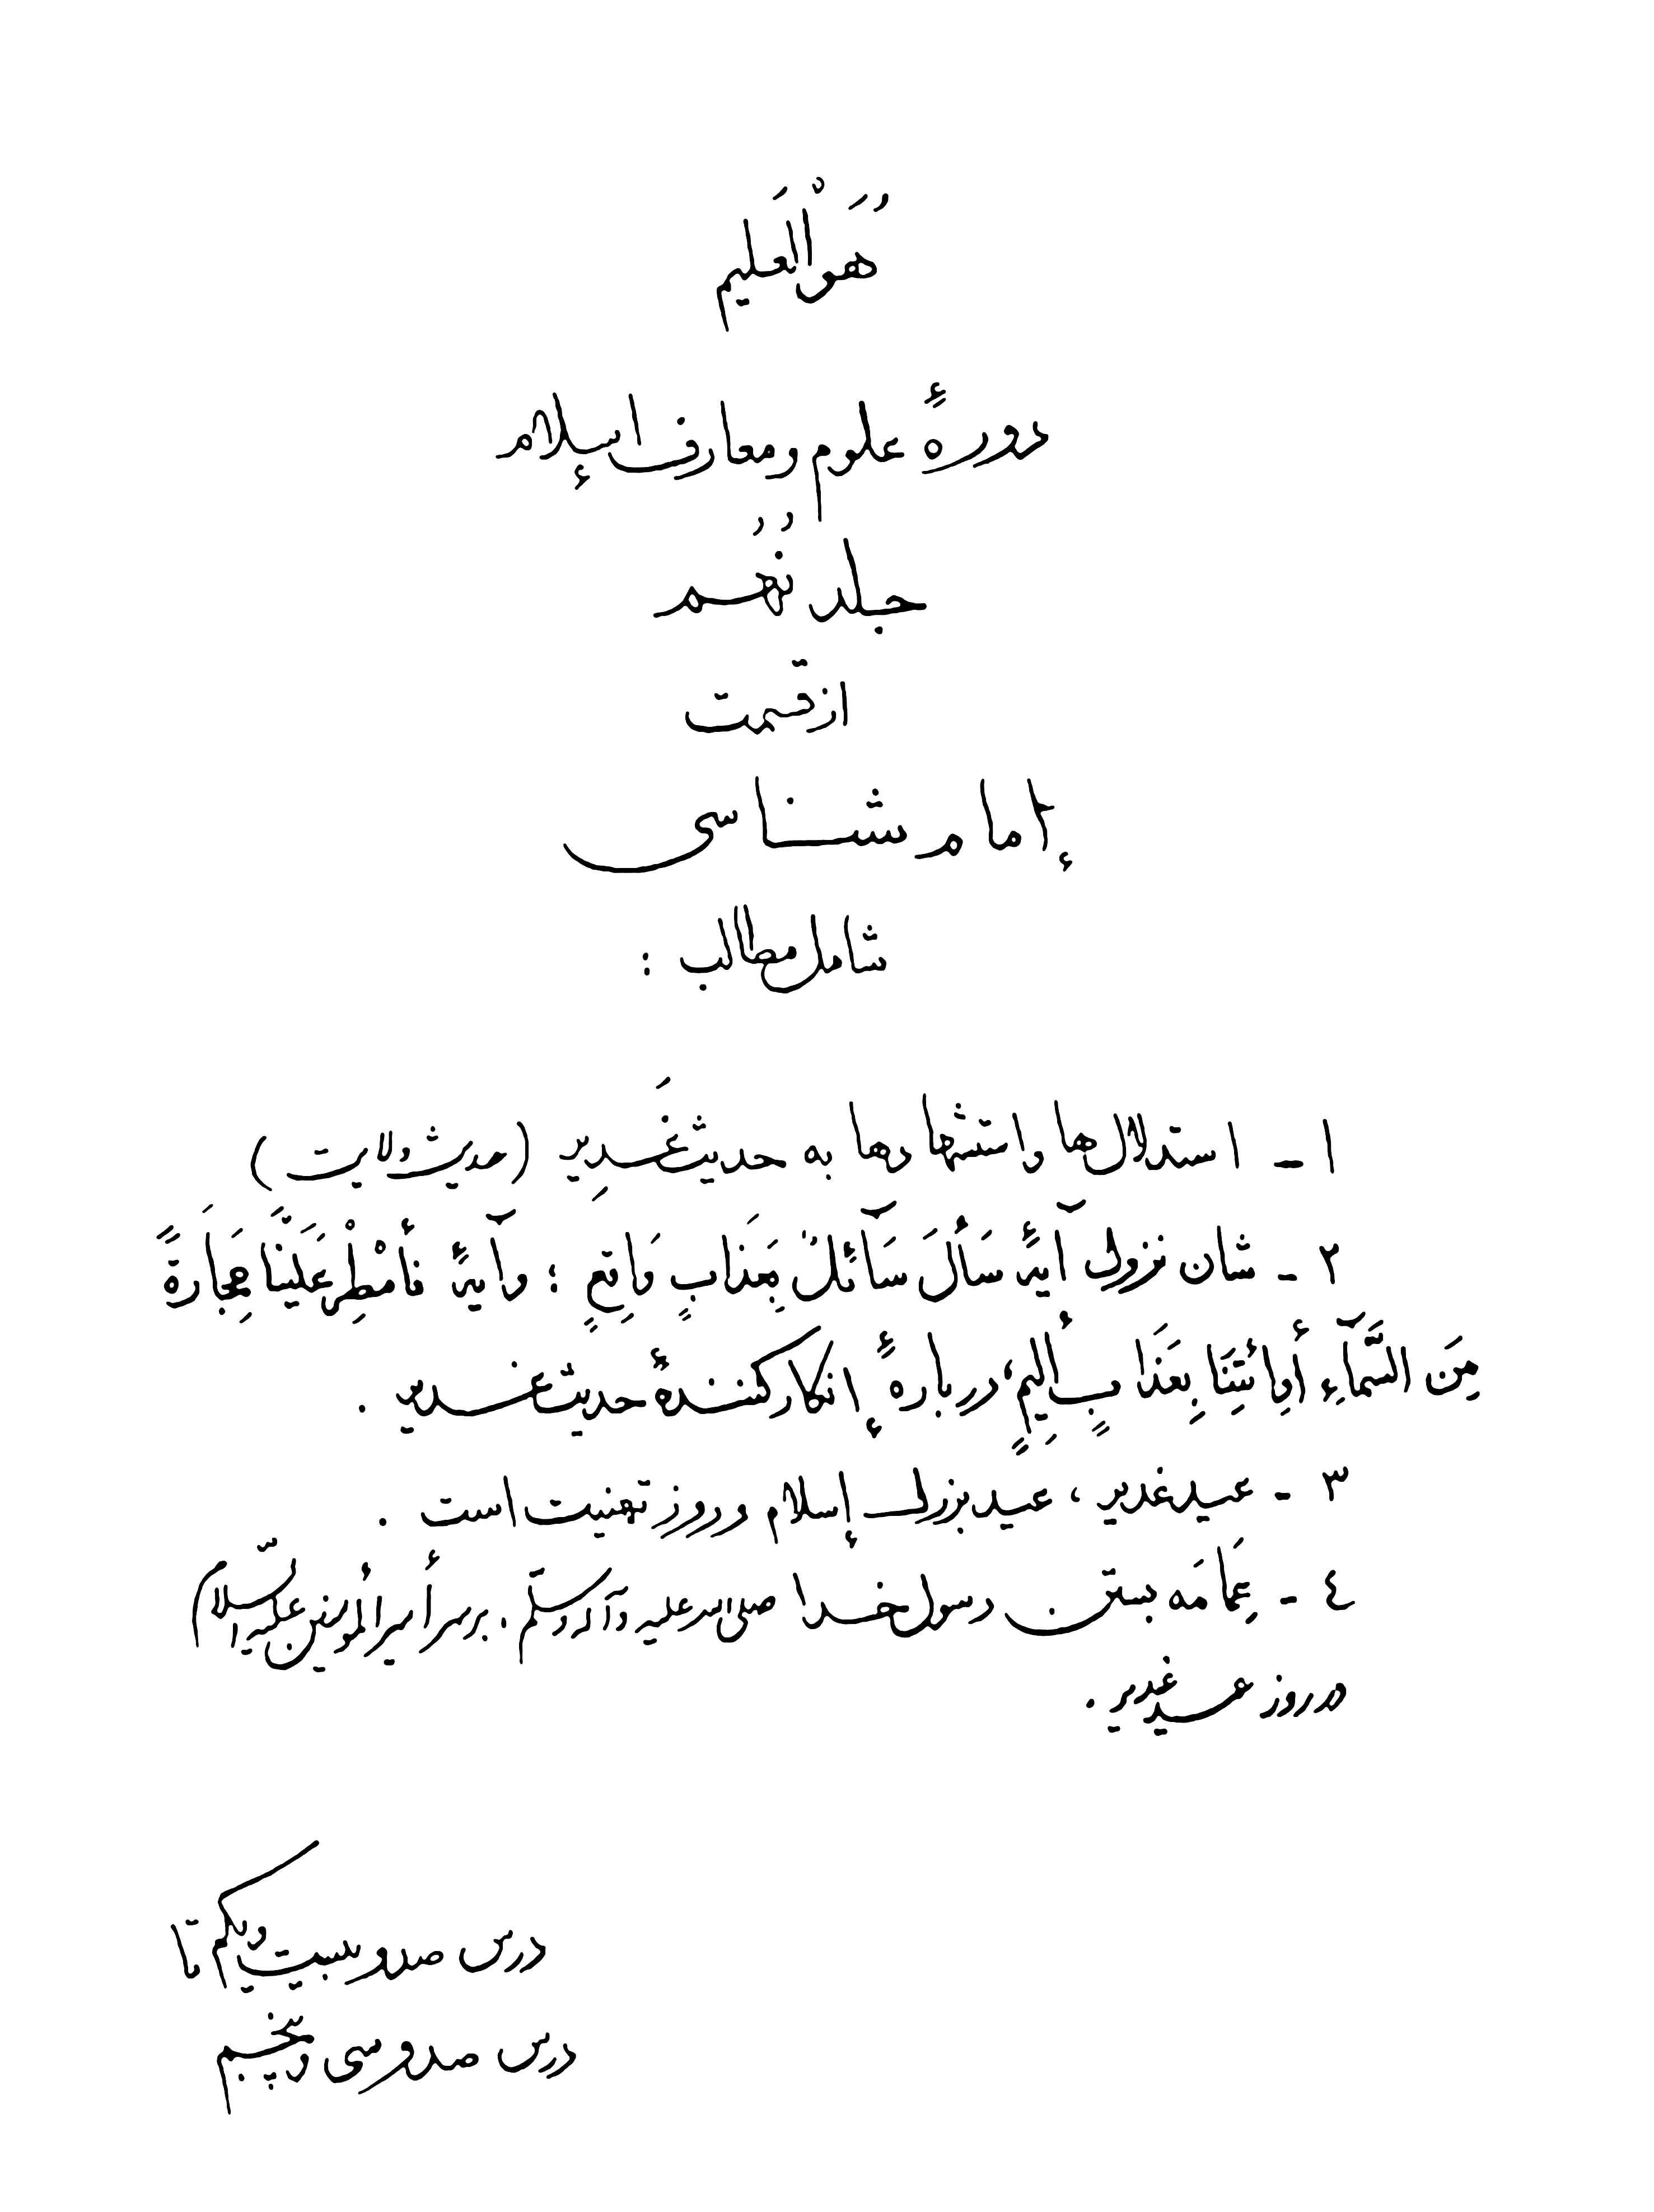 هُوَ الْعَلیم
دورهٔ علوم و معارف إسلام
جلد نُهُم
از قسمت
إمام شناسی
شامل مطالب :
١ ـ استدلال‌ها و استشهادها به حدیث غَدِیر (حدیث ولایت)
٢ ـ شان نزول آیهٔ سَأَلَ سَآئِلٌ بِعَذَابٍ وَاقِعٍ ؛ و آیهٔ فَأَمْطِرْ عَلَيْنَا حِجَارَةً
مِنَ السَّمَآءِ أَوِ ائْتِنَا بِعَذَابٍ أَلِيمٍ ؛ دربارهٔ إنکار کنندهٔ حدیث غدیر .
٣ ـ عید غدیر ، عید بزرگ إسلام و روز تهنیت است .
٤ ـ عِمَامَه بستن رسول خدا صلی الله علیه و آله و سلم ، بر سر أمیرالمؤمنین علیه السلام
در روز عید غدیر .
درس صد و بیست و یکم تا
درس صد و سی و پنجم